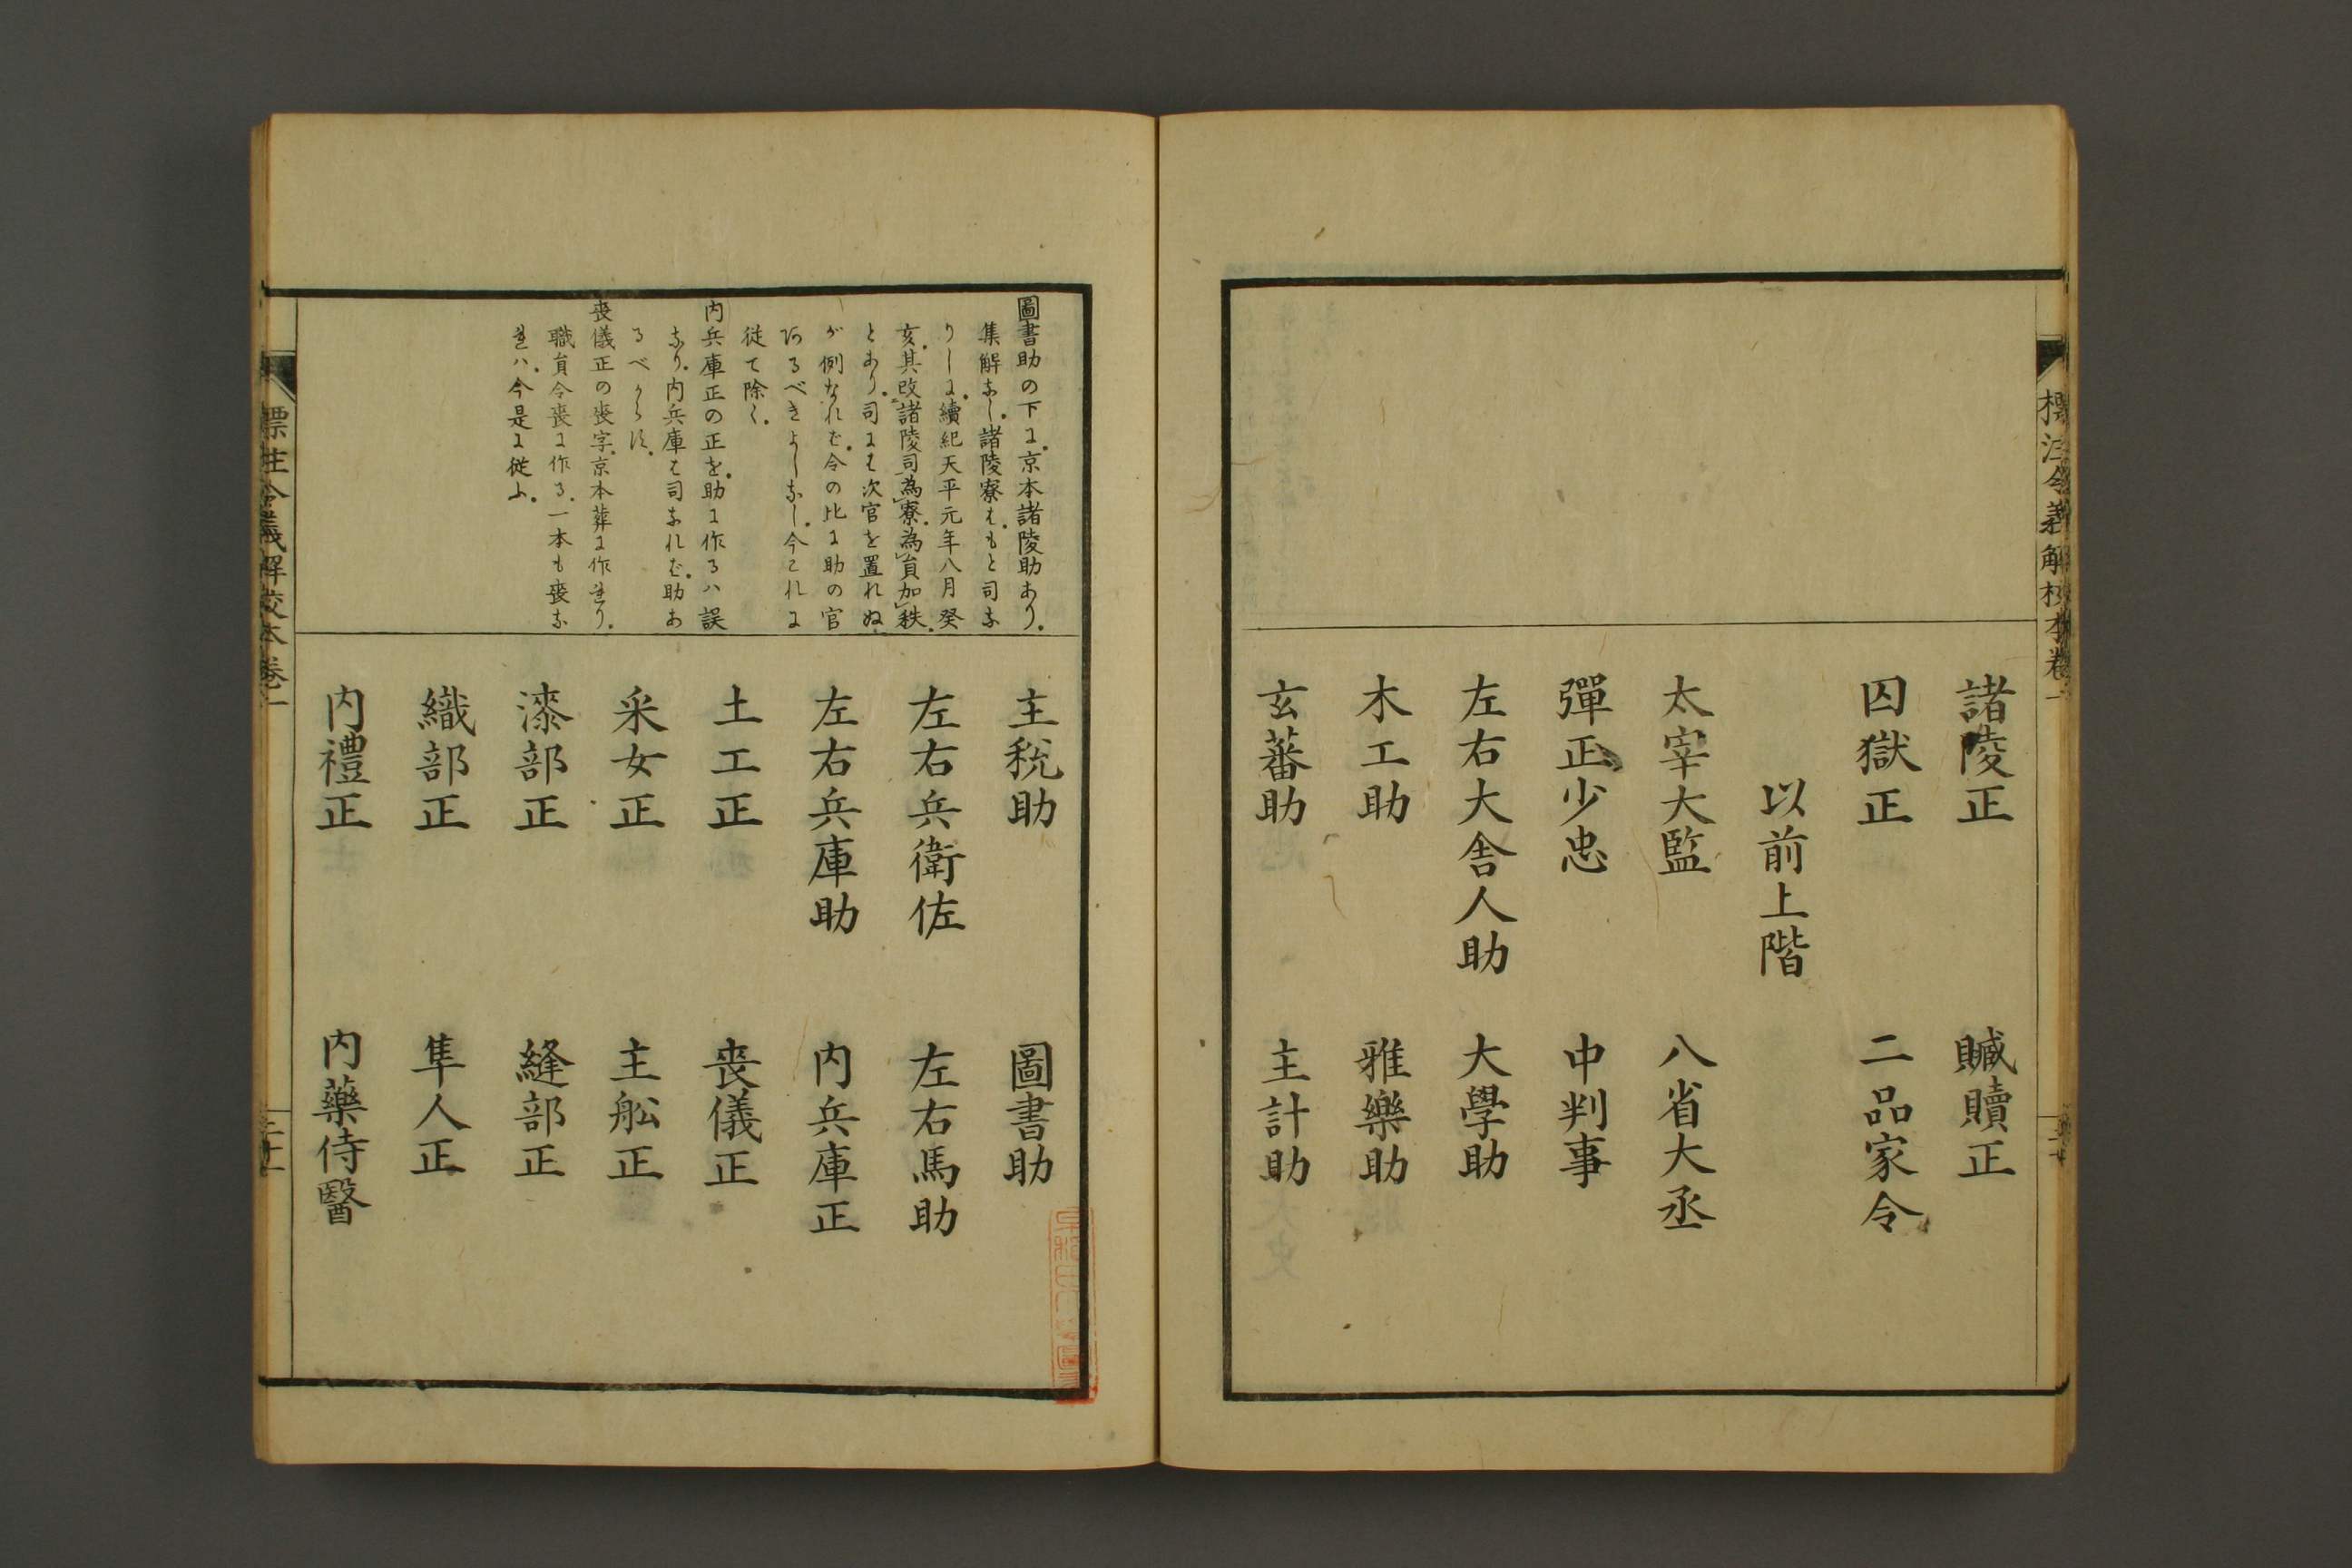 標注令義解校本卷一
諸陵正 贓贖正
囚獄正 二品家令
以前上階
太宰大監 八省大丞
彈正少忠 中判事
左右大舍人助 大學助
木工助 雅樂助
玄蕃助 主計助
圖書助の下に京本諸陵助あり。
集解なし。諸陵寮はもと司な
りしに續紀天平元年八月癸
亥。其改諸陵司為寮。為員加秩。
とあり。司には次官を置れぬ
が例なれば。令の比に助の官
あるべきよしなし。今これに
従て除く。
内兵庫正の正を。助に作るハ誤
なり。内兵庫は司なれば。助あ
るべからず。
喪儀正の喪字。京本葬に作れり。
職員令喪に作る。一本も喪な
れハ。今是に従ふ。
主税助 圖書助
左右兵衛佐 左右馬助
左右兵庫助 内兵庫正
土工正 喪儀正
采女正 主舩正
漆部正 縫部正
織部正 隼人正
内禮正 内藥侍醫
標注令義解校本卷一